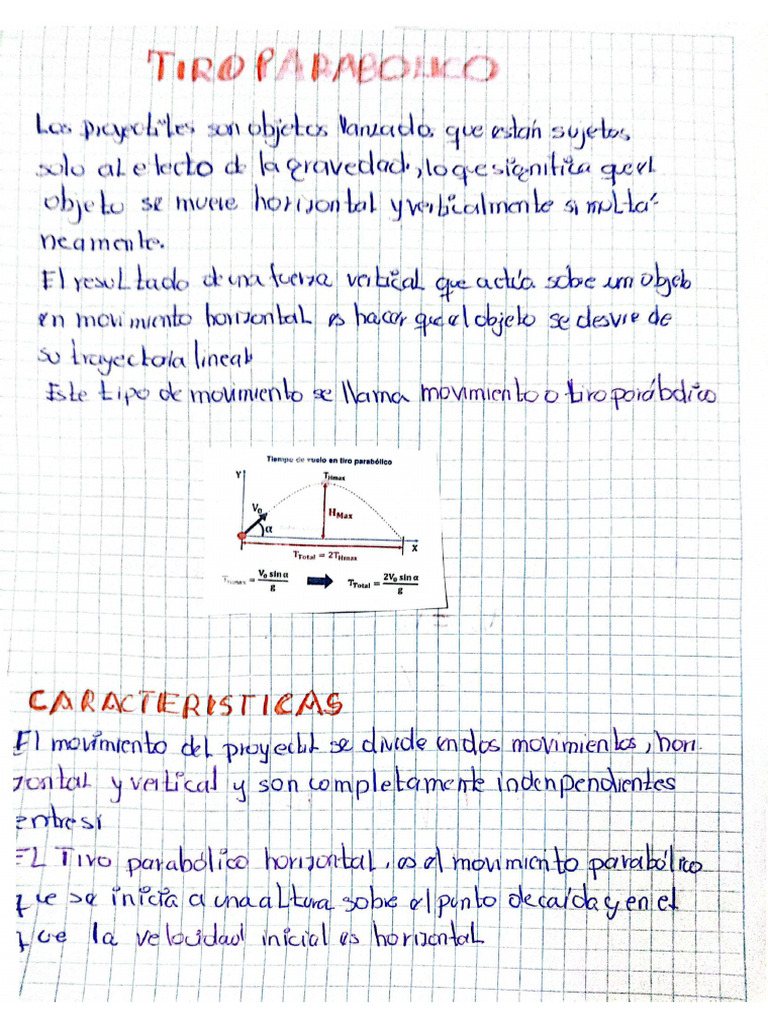 TIRO PARABOLICO
Los proyectiles son objetos lanzados que están sujetos
solo al efecto de la gravedad, lo que significa que el
objeto se mueve horizontal y verticalmente simultá-
neamente.
El resultado de una fuerza vertical que actúa sobre un objeto
en movimiento horizontal es hacer que el objeto se desvie de
su trayectoria lineal
Este tipo de movimiento se llama movimiento o tiro parábolico
Tiempo de vuelo en tiro parabólico
Y T_Hmax
V₀ H_Max
α
X
T_Total = 2T_Hmax
T_Hmax = V₀ sin α / g T_Total = 2V₀ sin α / g
CARACTERISTICAS
El movimiento del proyectil se divide en dos movimientos, hori
zontal y vertical y son completamente indenpendientes
entre sí
EL Tiro parabólico horizontal, es el movimiento parabólico
que se inicia a una altura sobre el punto de caída y en el
que la velocidad inicial es horizontal